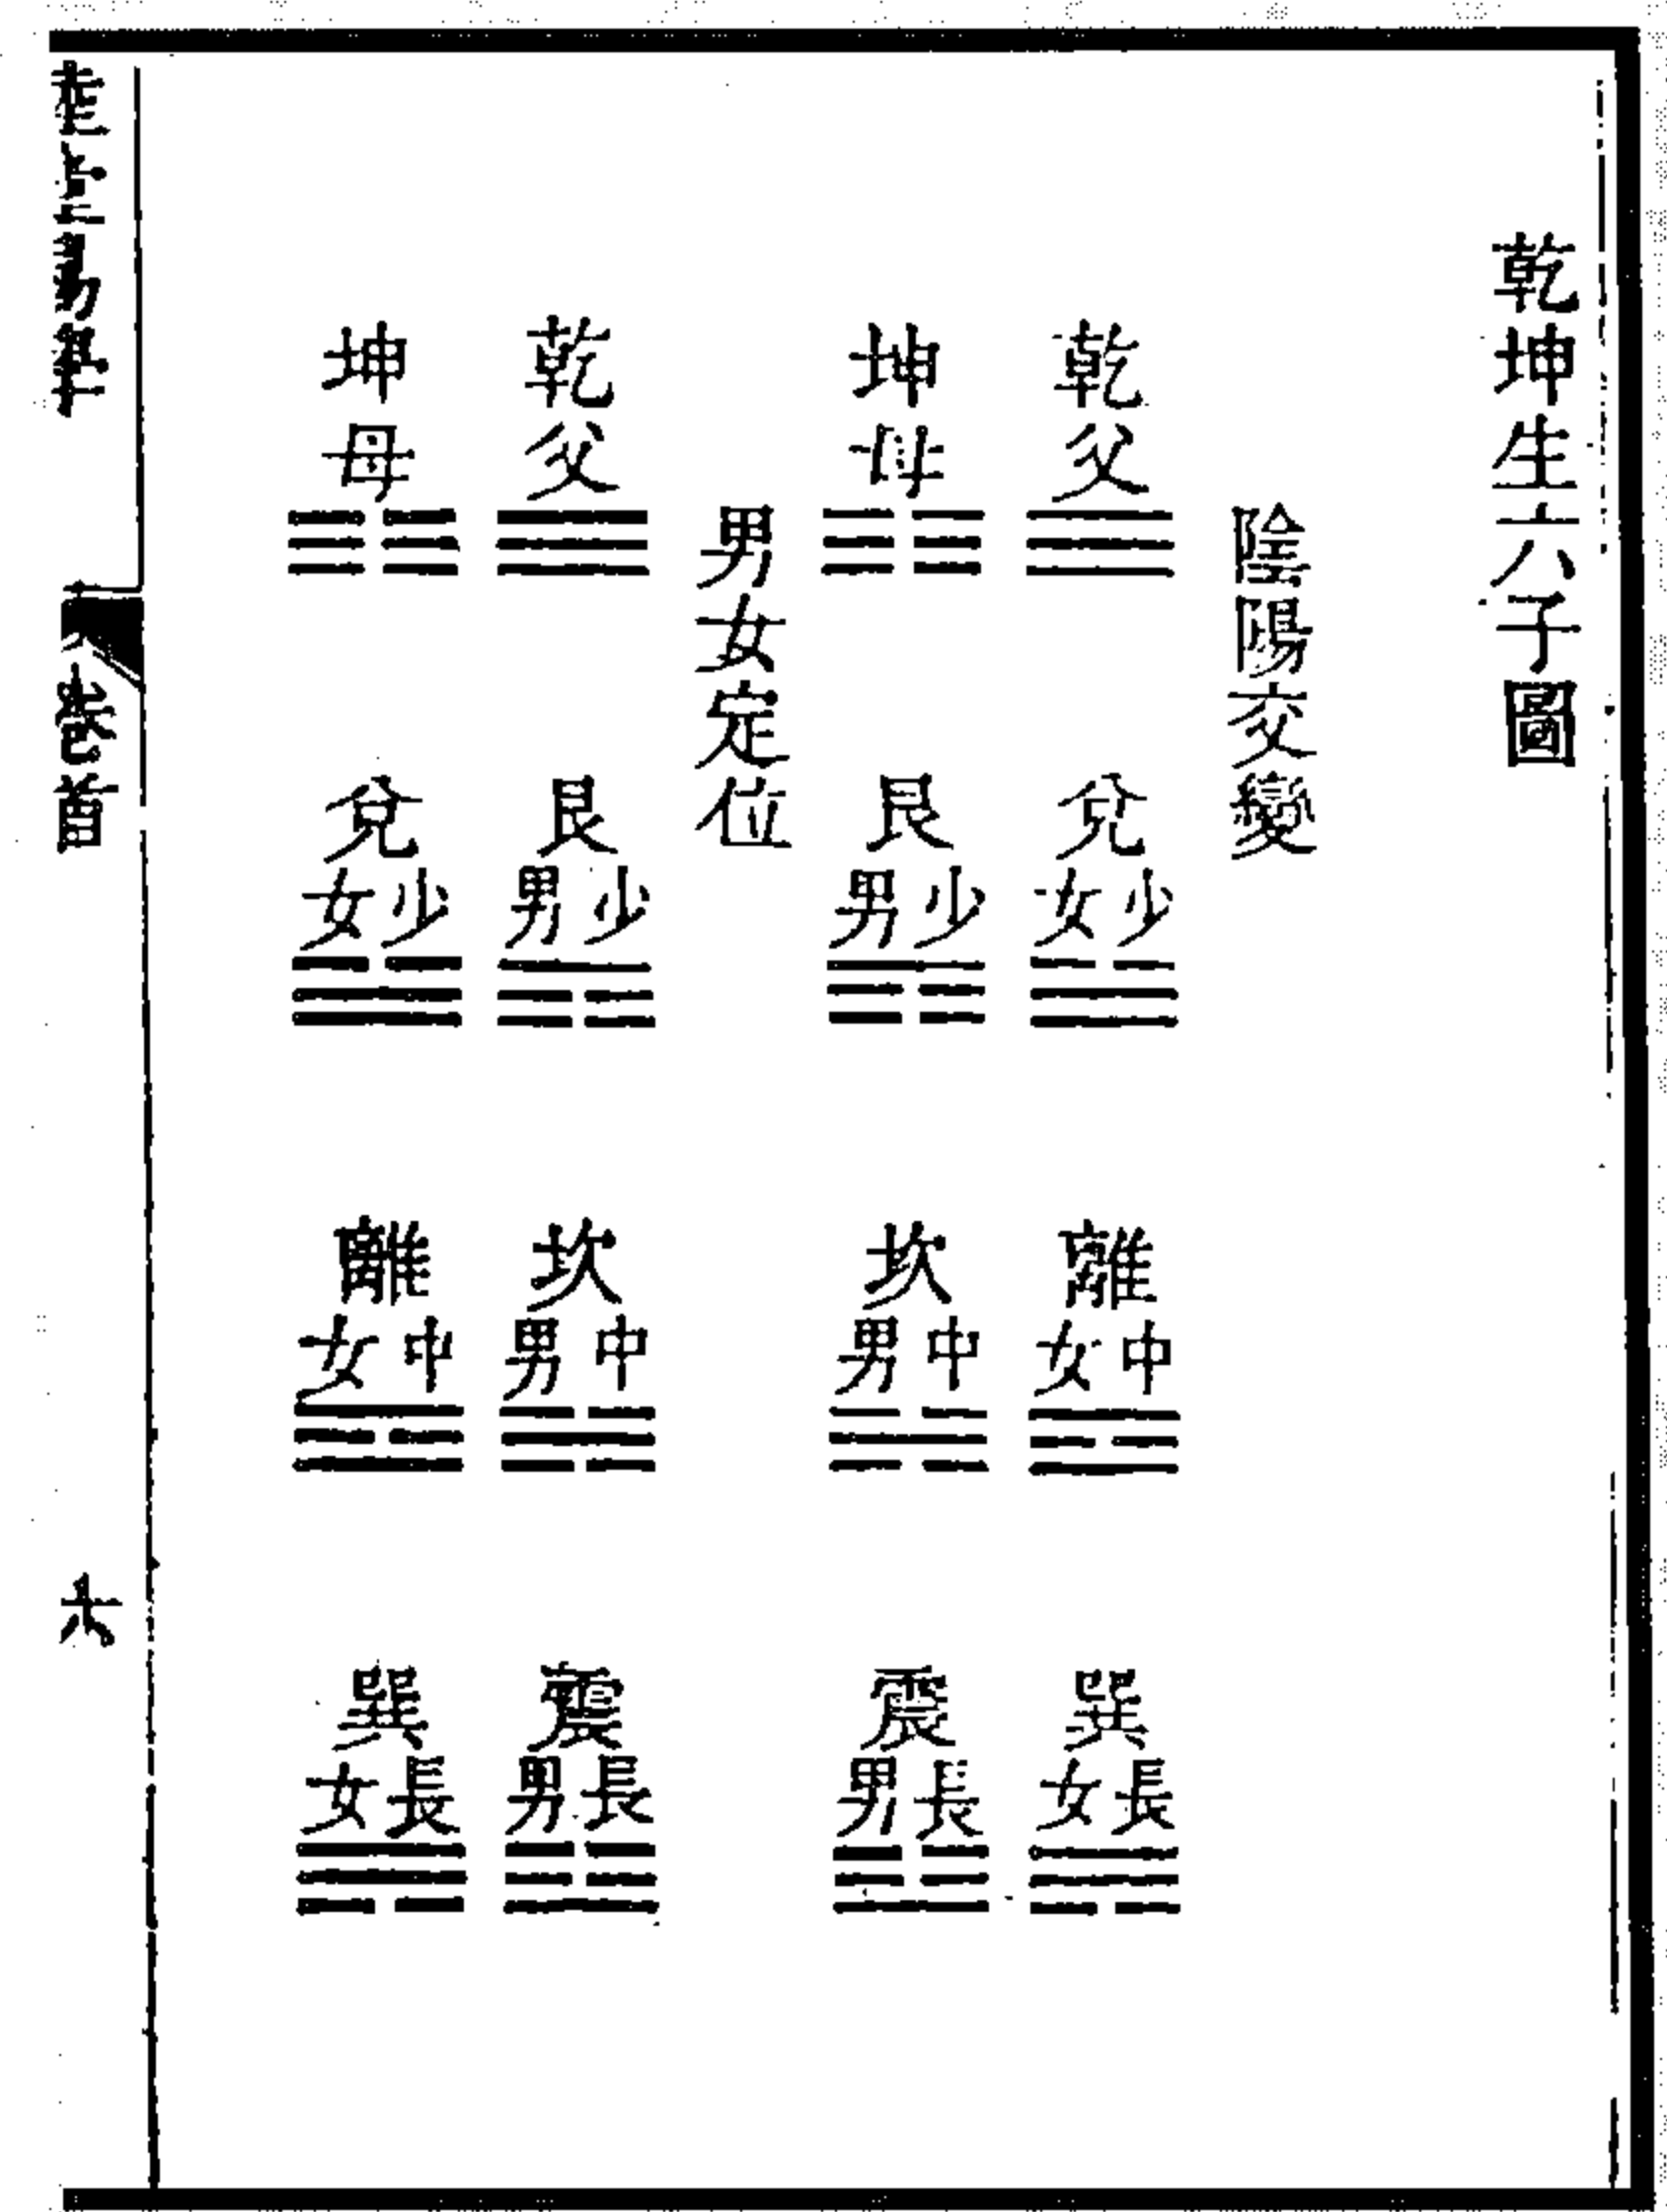 乾坤生六子圖
陰陽交變
乾父
兌少女
離中女
巽長女
坤母
艮少男
坎中男
震長男
男女定位
乾父
艮少男
坎中男
震長男
坤母
兌少女
離中女
巽長女
卷首
六